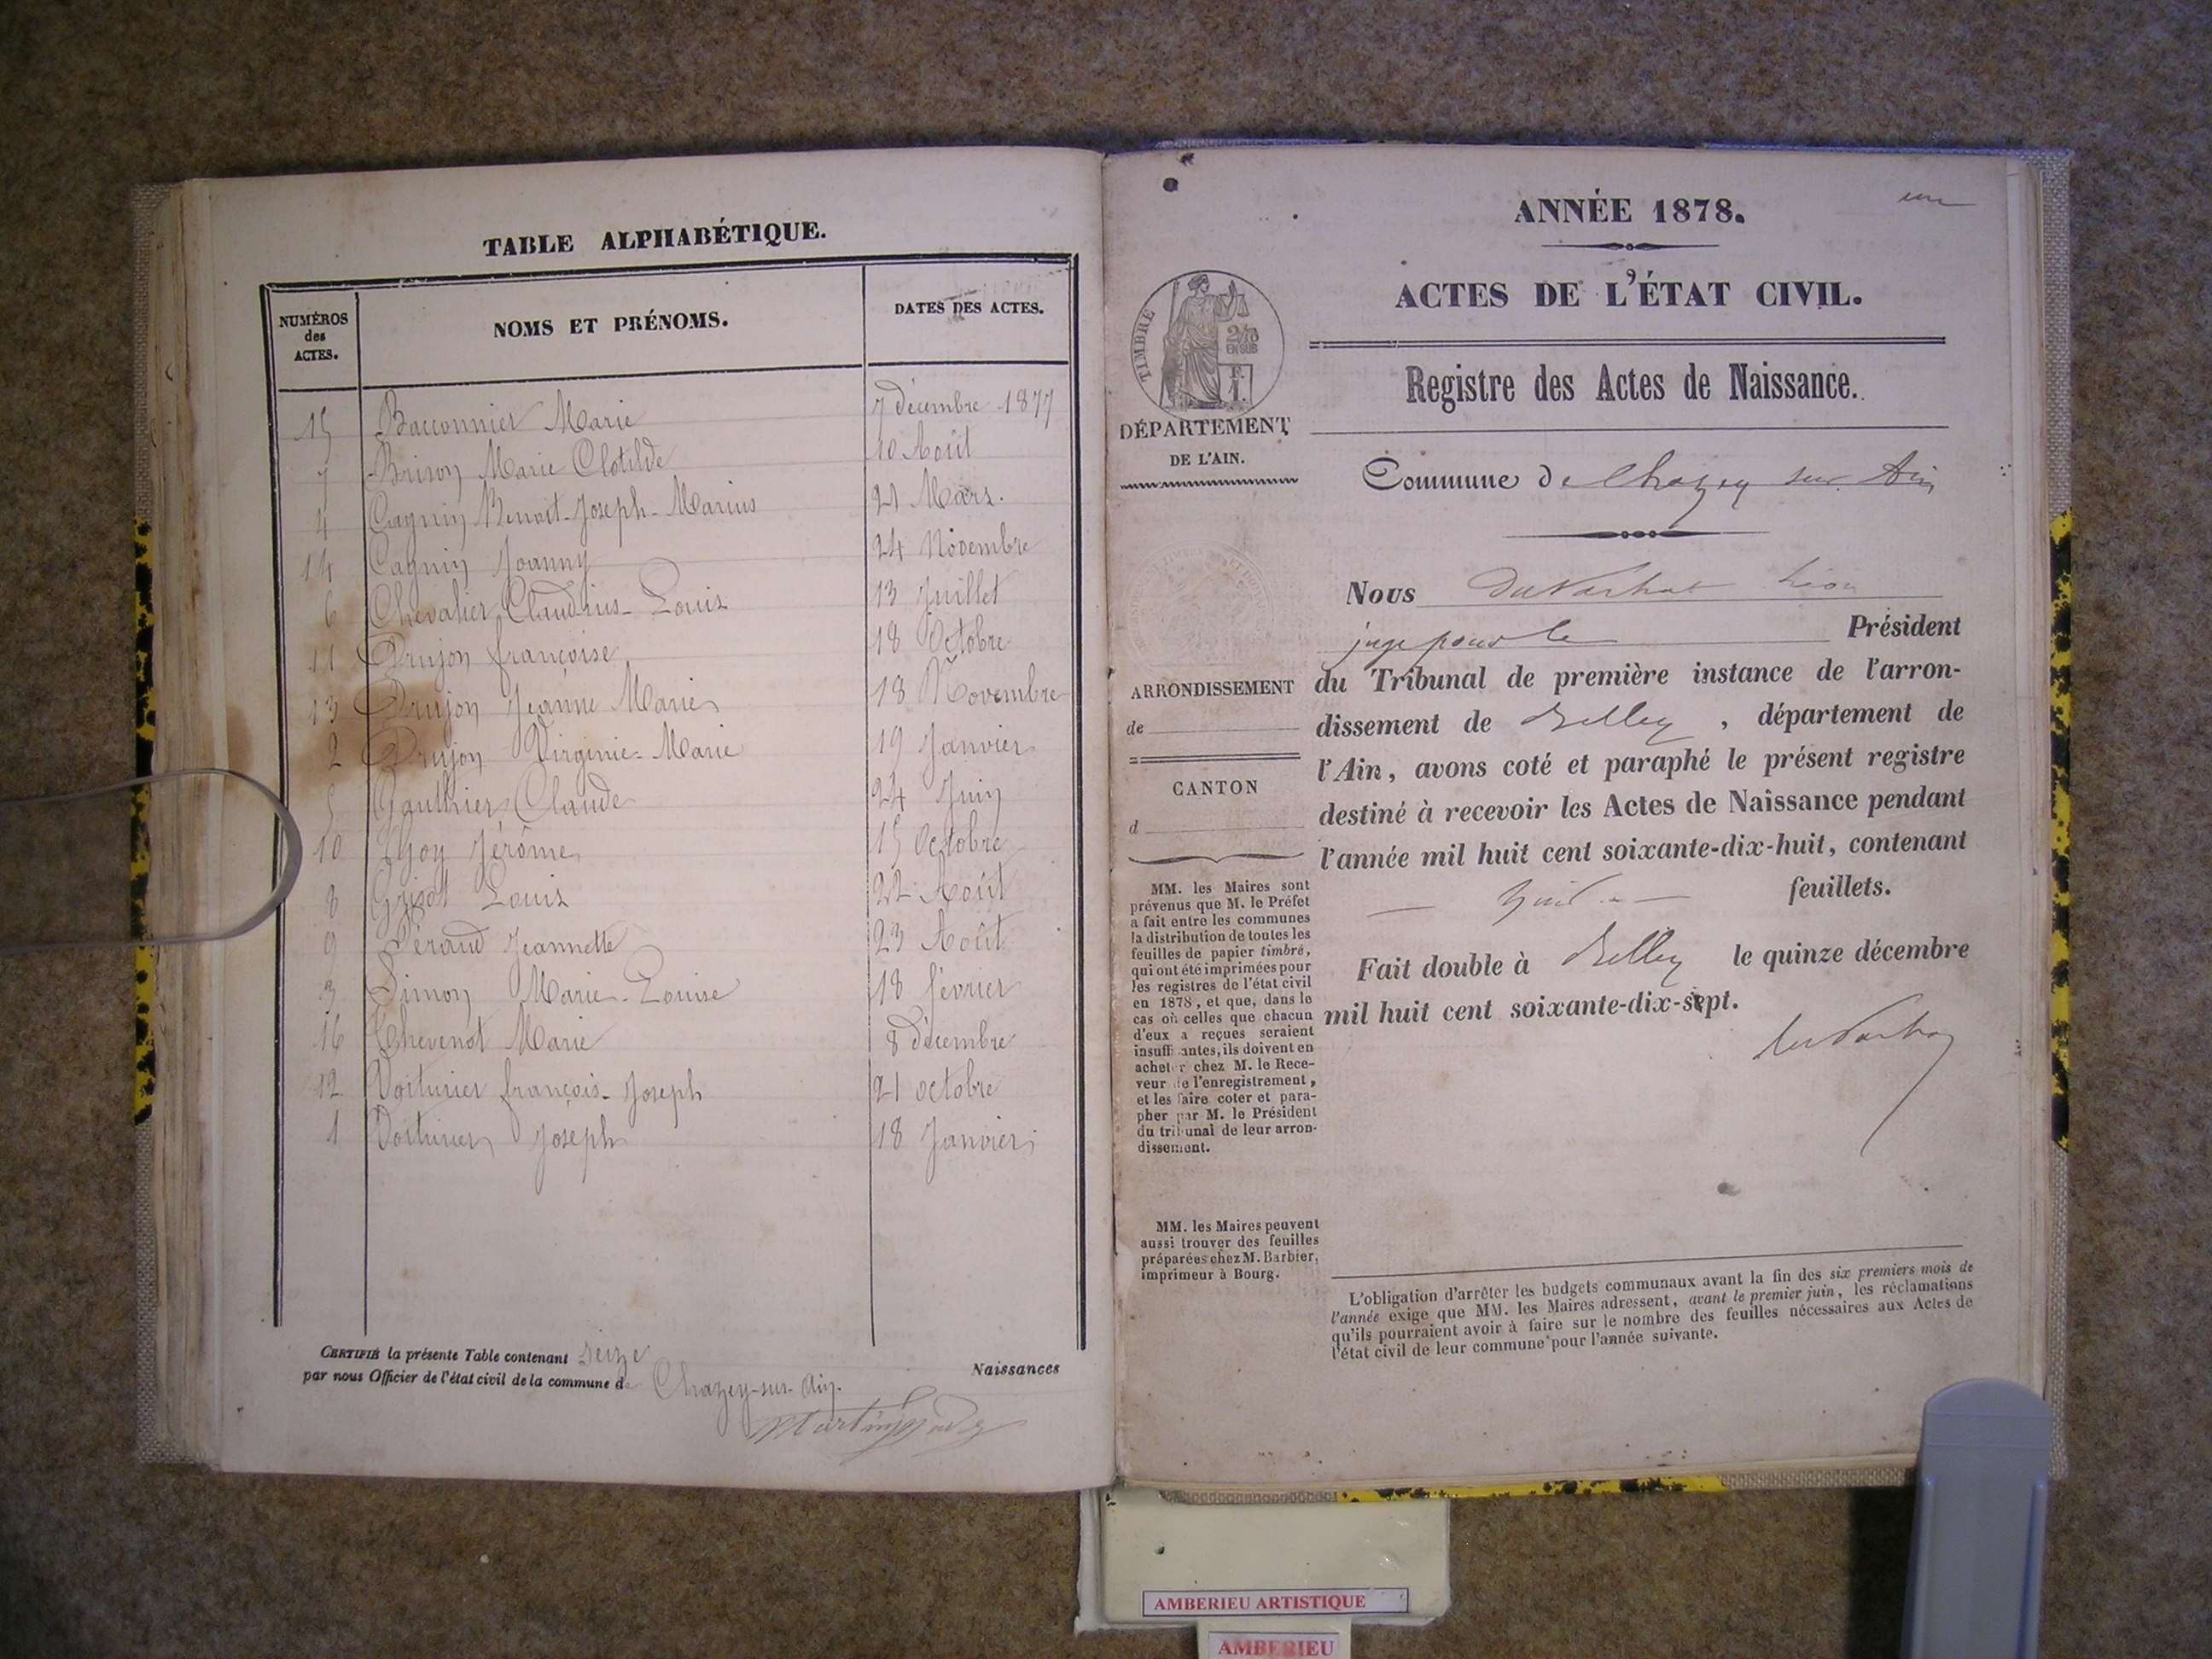 TABLE ALPHABÉTIQUE.
NUMÉROS des ACTES. NOMS ET PRÉNOMS. DATES DES ACTES.
15 Bacconnier Marie 7 décembre 1877
7 Brison Marie Clotilde 10 Août
4 Cagnin Benoit-Joseph-Marius 21 Mars.
14 Cagnin Joanny 24 Novembre
6 Chevalier Claudius-Louis 13 Juillet
11 Drujon françoise 18 Octobre
13 Drujon Jeanne Marie 18 Novembre
2 Drujon Virginie-Marie 19 Janvier
5 Gauthier Claude 24 Juin
10 Goy Jérôme 15 Octobre
8 Grisot Louis 22 Août
9 Péraud Jeannette 23 Août
3 Simon Marie-Louise 18 février
16 Thevenot Marie 8 décembre
12 Voiturier françois-Joseph 21 octobre
1 Voiturier Joseph 18 Janvier
CERTIFIÉ la présente Table contenant seize Naissances
par nous Officier de l'état civil de la commune de Chazey-sur-Ain.
un
ANNÉE 1878.
ACTES DE L'ÉTAT CIVIL.
Registre des Actes de Naissance.
TIMBRE
2/10 EN SUS
F. 1.
DÉPARTEMENT
DE L'AIN.
Commune de Chazey sur Ain
Nous Léon
juge pour le Président
du Tribunal de première instance de l'arron-
dissement de Belley, département de
l'Ain, avons coté et paraphé le présent registre
destiné à recevoir les Actes de Naissance pendant
l'année mil huit cent soixante-dix-huit, contenant
feuillets.
Fait double à Belley le quinze décembre
mil huit cent soixante-dix-sept.
ARRONDISSEMENT
de
CANTON
d
MM. les Maires sont
prévenus que M. le Préfet
a fait entre les communes
la distribution de toutes les
feuilles de papier timbré,
qui ont été imprimées pour
les registres de l'état civil
en 1878, et que, dans le
cas où celles que chacun
d'eux a reçues seraient
insuffisantes, ils doivent en
acheter chez M. le Rece-
veur de l'enregistrement,
et les faire coter et para-
pher par M. le Président
du tribunal de leur arron-
dissement.
MM. les Maires peuvent
aussi trouver des feuilles
préparées chez M. Barbier,
imprimeur à Bourg.
L'obligation d'arrêter les budgets communaux avant la fin des six premiers mois de
l'année exige que MM. les Maires adressent, avant le premier juin, les réclamations
qu'ils pourraient avoir à faire sur le nombre des feuilles nécessaires aux Actes de
l'état civil de leur commune pour l'année suivante.
AMBERIEU ARTISTIQUE
AMBERIEU